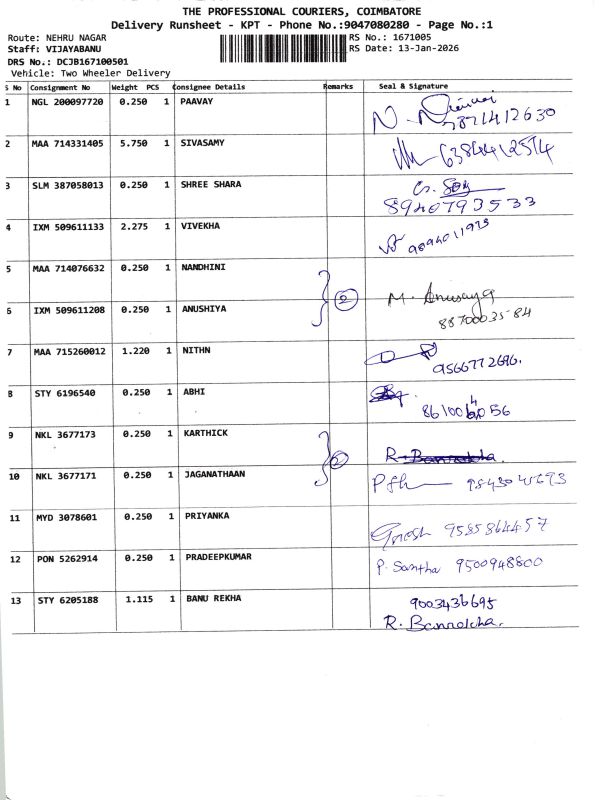 THE PROFESSIONAL COURIERS, COIMBATORE
Delivery Runsheet - KPT - Phone No.:9047080280 - Page No.:1
Route: NEHRU NAGAR RS No.: 1671005
Staff: VIJAYABANU RS Date: 13-Jan-2026
DRS No.: DCJB167100501
Vehicle: Two Wheeler Delivery
S No Consignment No Weight PCS Consignee Details Remarks Seal & Signature
1 NGL 200097720 0.250 1 PAAVAY
2 MAA 714331405 5.750 1 SIVASAMY
3 SLM 387058013 0.250 1 SHREE SHARA
8940793533
4 IXM 509611133 2.275 1 VIVEKHA
5 MAA 714076632 0.250 1 NANDHINI
2 M. Anusuya
6 IXM 509611208 0.250 1 ANUSHIYA
8870003584
7 MAA 715260012 1.220 1 NITHN
9566772696.
8 STY 6196540 0.250 1 ABHI
9 NKL 3677173 0.250 1 KARTHICK
2 R. Bannekha.
10 NKL 3677171 0.250 1 JAGANATHAAN
11 MYD 3078601 0.250 1 PRIYANKA
9585864457
12 PON 5262914 0.250 1 PRADEEPKUMAR
P. Santha 9500948800
13 STY 6205188 1.115 1 BANU REKHA
9003436695
R. Bannekha.